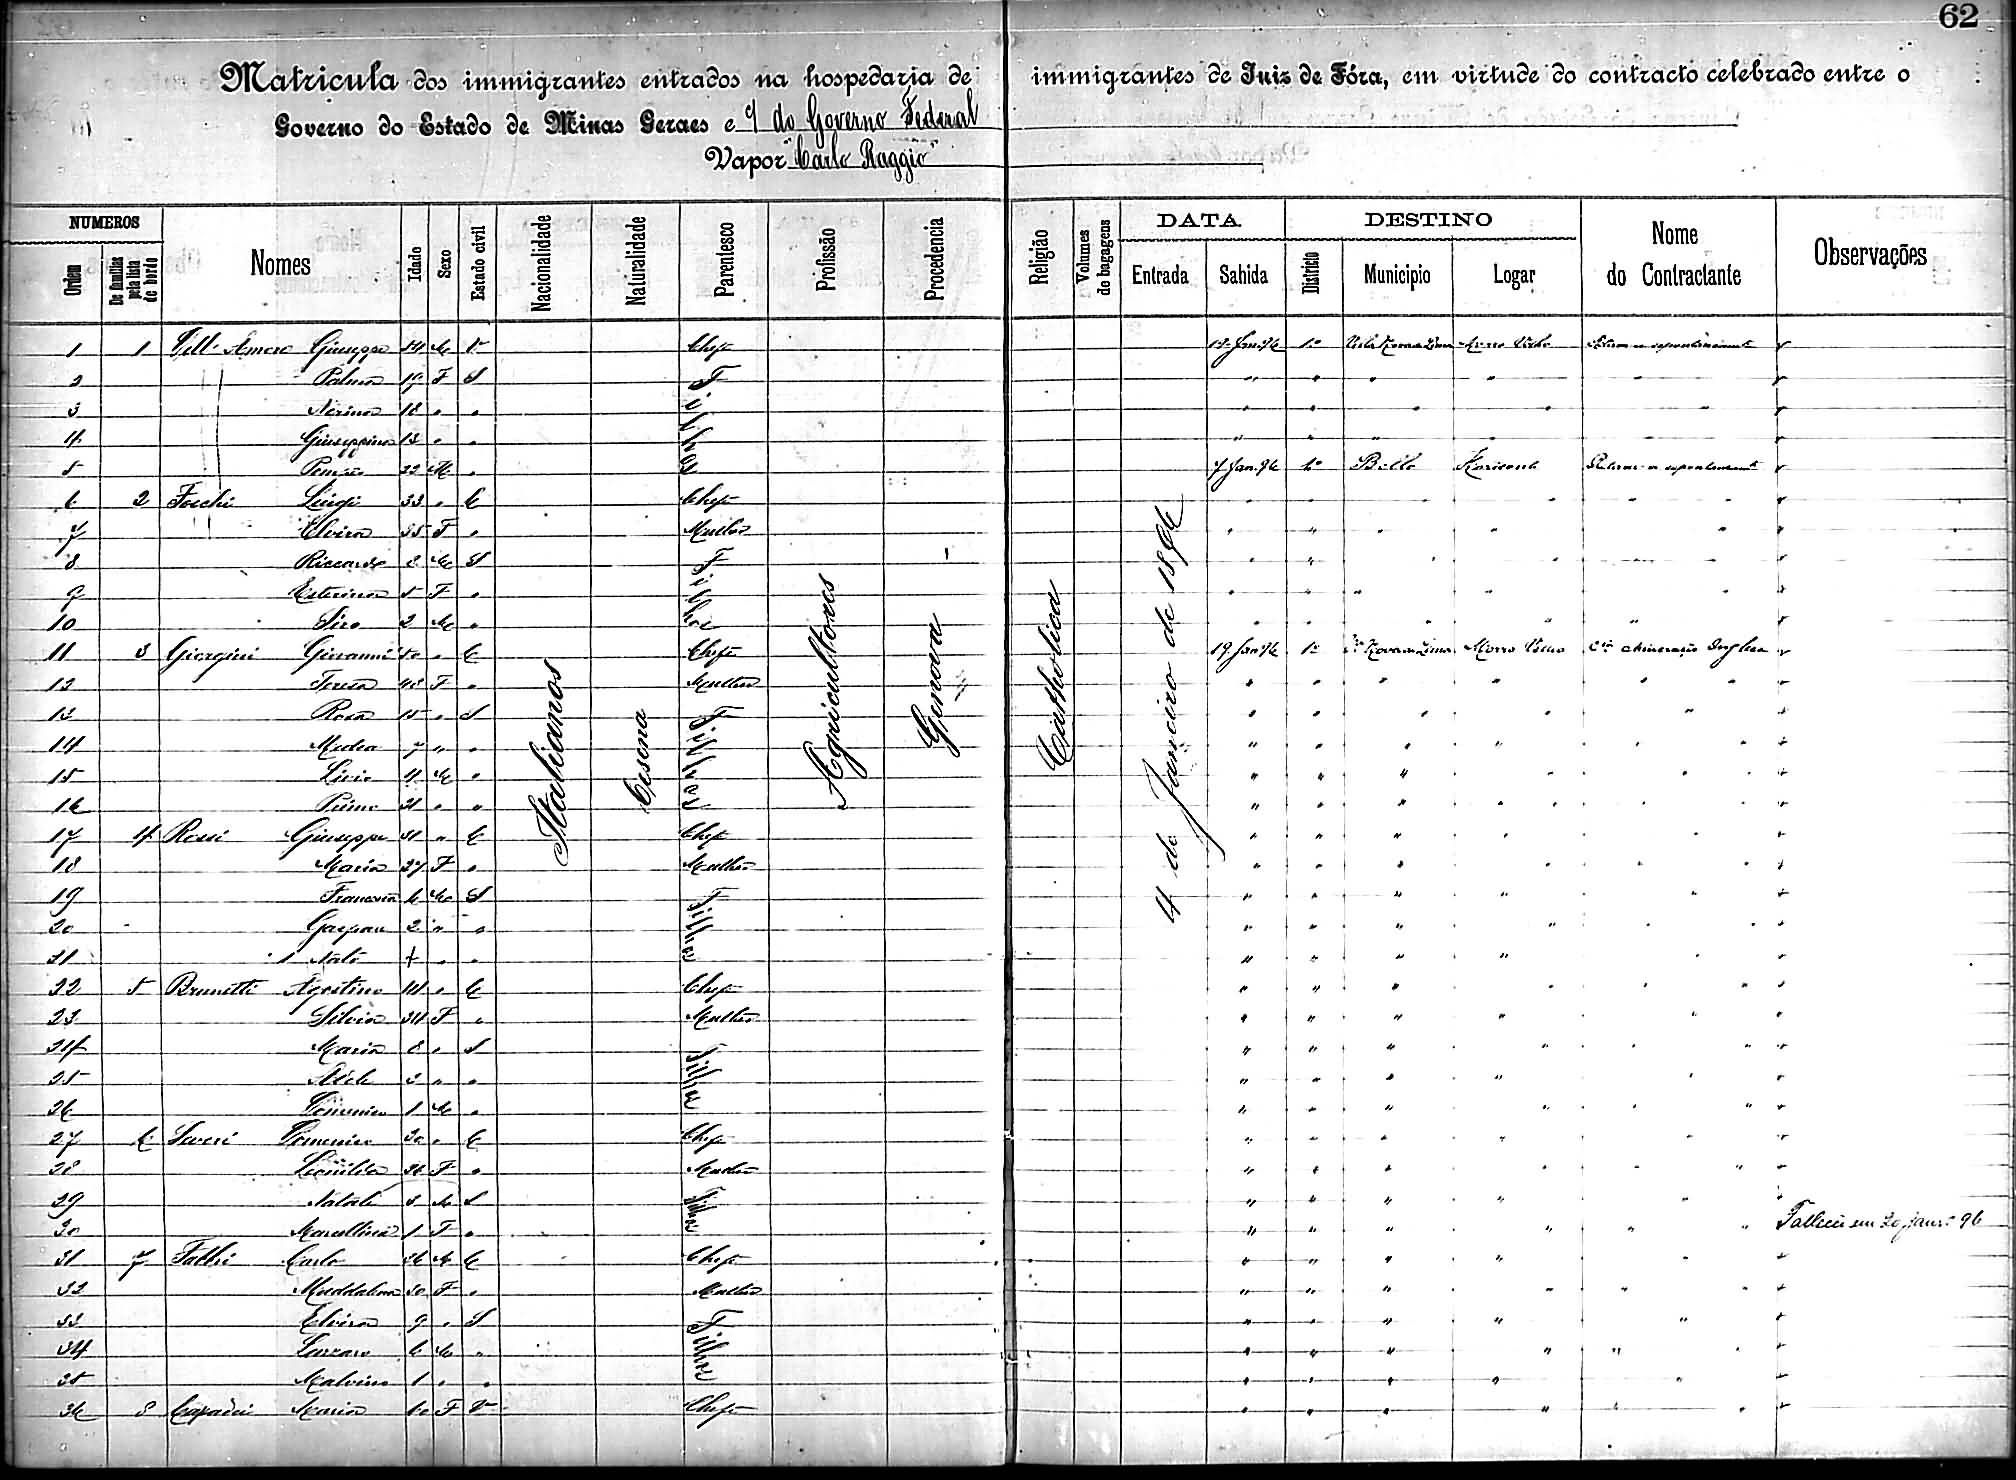 62
Matricula dos immigrantes entrados na hospedaria de immigrantes de Juiz de Fóra, em virtude do contracto celebrado entre o
Governo do Estado de Minas Geraes e do Governo Federal
Vapor "Carlo Raggio"
NUMEROS DATA DESTINO
Ordem De familias pela lista de bordo Nomes Idade Sexo Estado civil Nacionalidade Naturalidade Parentesco Profissão Procedencia Religião Volumes de bagagens Entrada Sahida Districto Municipio Logar Nome do Contractante Observações
Italianos
Cesena
Agricultores
Genova
Catholica
4 de Janeiro de 1896
1 1 Dell' Amore Giuseppe 54 M V Chefe 1º
2 Palma 19 F S Filhos
3 18 " "
4 Giuseppina 13 " "
5 22 M " 7 Jan. 96 1º Bello Horizonte
6 2 Foschi Luigi 33 " C Chefe
7 Elvira 35 F " Mulher
8 Riccardo 8 M S Filhos
9 Esterina 5 F "
10 2 M "
11 3 Giorgini Giovanni 50 " C Chefe 19 Jan 96 1º Morro Velho Cia Mineração Ingleza
12 Teresa 43 F " Mulher
13 Rosa 15 " S Filhos
14 Medea 7 " "
15 Livio 4 M "
16 Primo 21 " "
17 4 Rossi Giuseppe 31 " C Chefe
18 Maria 27 F " Mulher
19 Francesco 6 M S Filhos
20 Gaspare 2 " "
21 Nato + " "
22 5 Brunetti Agostino 41 " C Chefe
23 Silvia 34 F " Mulher
24 Maria 8 " S Filhos
25 Adele 3 " "
26 Domenico 1 M "
27 6 Severi Domenico 30 " C Chefe
28 Leonilda 26 F " Mulher
29 Natale 3 M S Filhos
30 Marcellina 1 F " Falleceu em 20 Janro 96
31 7 Fabbri Carlo 36 M C Chefe
32 Maddalena 30 F " Mulher
33 Elvira 9 " S Filhos
34 Lazzaro 6 M "
35 Malvino 1 " "
36 8 Maria F V Chefe